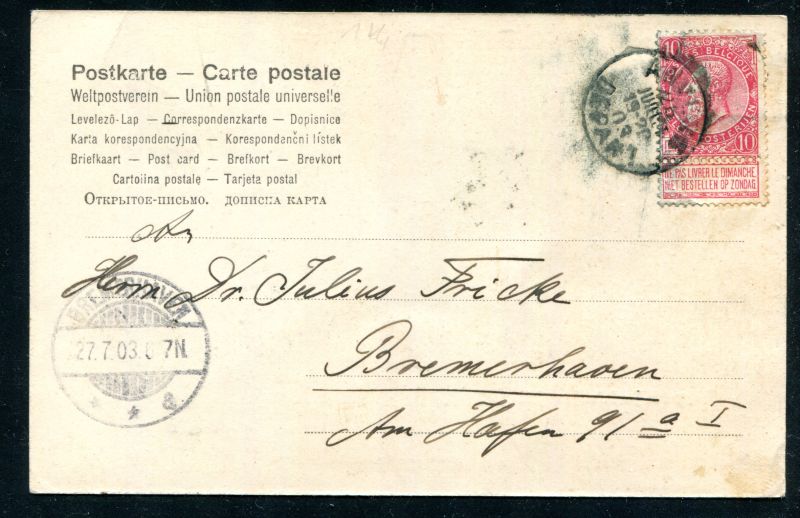 1 1/4
Postkarte — Carte postale
Weltpostverein — Union postale universelle
Levelező-Lap — Correspondenzkarte — Dopisnice
Karta korespondencyjna — Korespondanční lístek
Briefkaart — Post card — Brefkort — Brevkort
Cartolina postale — Tarjeta postal
Открытое-письмо. дописна карта
10 BELGIQUE
POSTERIJEN 10
NE PAS LIVRER LE DIMANCHE
NIET BESTELLEN OP ZONDAG
DEPART
An
Herrn Dr. Julius Fricke
Bremerhaven
Am Hafen 91 a I
BREMERHAVEN
27.7.03. 6-7N.
* * a